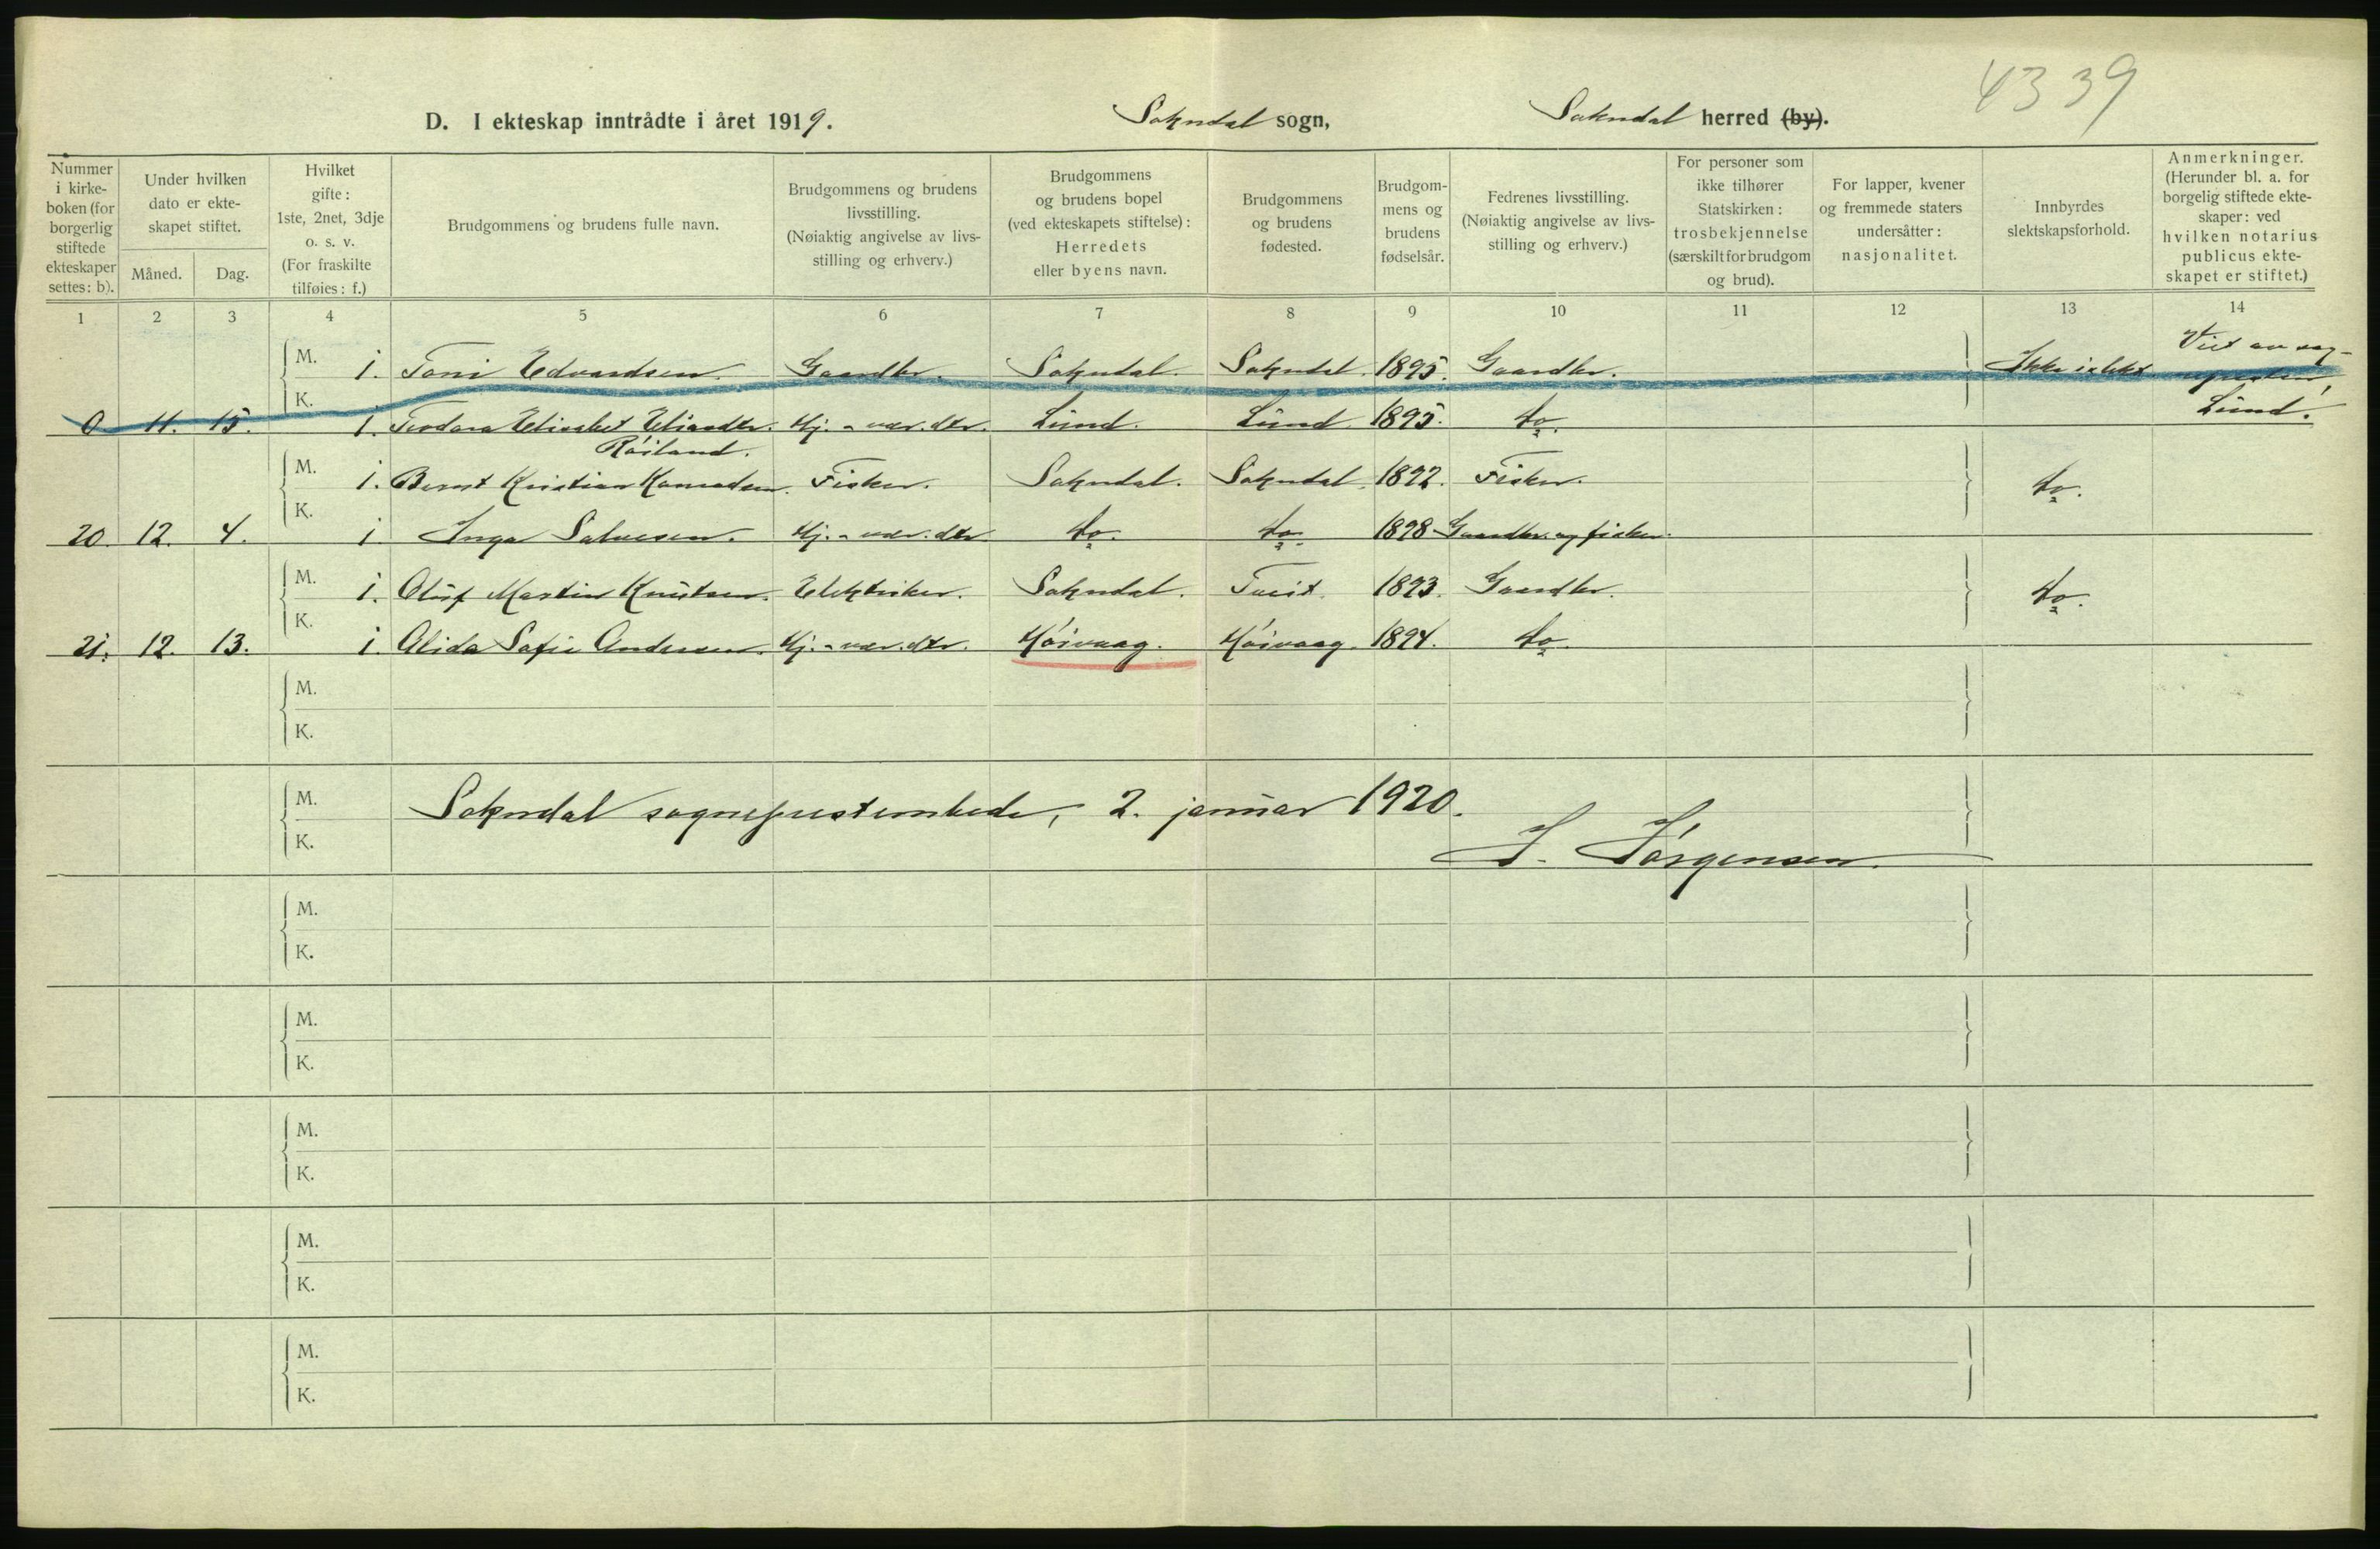 4339
D. I ekteskap inntrådte i året 1919. Sokndal sogn, Sokndal herred (by).
Nummer i kirkeboken (for borgerlig stiftede ekteskaper settes: b).
Under hvilken dato er ekteskapet stiftet.
Måned. Dag.
Hvilket gifte: 1ste, 2net, 3dje o. s. v. (For fraskilte tilføies: f.)
Brudgommens og brudens fulle navn.
Brudgommens og brudens livsstilling. (Nøiaktig angivelse av livsstilling og erhverv.)
Brudgommens og brudens bopel (ved ekteskapets stiftelse): Herredets eller byens navn.
Brudgommens og brudens fødested.
Brudgommens og brudens fødselsår.
Fedrenes livsstilling. (Nøiaktig angivelse av livsstilling og erhverv.)
For personer som ikke tilhører Statskirken: trosbekjennelse (særskilt for brudgom og brud).
For lapper, kvener og fremmede staters undersåtter: nasjonalitet.
Innbyrdes slektskapsforhold.
Anmerkninger. (Herunder bl. a. for borgelig stiftede ekteskaper: ved hvilken notarius publicus ekteskapet er stiftet.)
1 2 3 4 5 6 7 8 9 10 11 12 13 14
M. 1. Toni Edvardsen. Gaardbr. Sokndal. Sokndal. 1895. Gaardbr. Ikke i slekt. Viet av sog-
K. nepresten,
0 11. 15. 1. Teodora Elisabet Eliasdtr. Hj. - vær. dtr. Lund. Lund. 1895. do. Lund.
Røiland.
M. 1. Bernt Kristian Konradsen. Fisker. Sokndal. Sokndal. 1892. Fisker. do.
K.
20. 12. 4. 1. Inga Salvesen. Hj. - vær. dtr. do. do. 1898 Gaardbr. og fisker.
M. 1. Oluf Martin Knutsen. Elektriker. Sokndal. Tveit. 1893. Gaardbr. do.
K.
21. 12. 13. 1. Alida Sofie Andersen. Hj. - vær. dtr. Høivaag. Høivaag. 1894. do.
M.
K.
M. Sokndal sogneprestembede, 2. januar 1920.
K. J. Jørgensen.
M.
K.
M.
K.
M.
K.
M.
K.
M.
K.